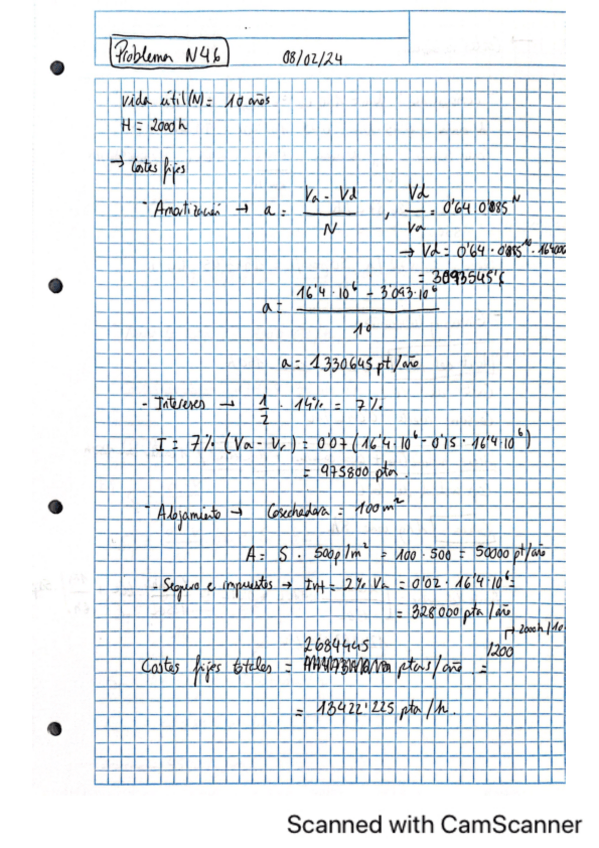 Problema N46
08/02/24
Vida útil (N) = 10 años
H = 2000h
→ Costes fijos
- Amortización → a = (Va - Vd) / N , Vd / Va = 0'64 · 0'885^N
→ Vd = 0'64 · 0'885^10 · 164000
= 3093545'6
a = (16'4 · 10^6 - 3'093 · 10^6) / 10
a = 1330645 pt/año
- Intereses → 1/2 · 14% = 7%
I = 7% (Va - Vr) = 0'07 (16'4 · 10^6 - 0'15 · 16'4 · 10^6)
= 975800 pta.
- Alojamiento → Cosechadora = 100 m²
A = S · 500p/m² = 100 · 500 = 50000 pt/año
- Seguro e impuestos → Int = 2% Va = 0'02 · 16'4 · 10^6 =
= 328000 pta/año
→ 2000h/10
2684445 /200
Costes fijos totales = ptas/año =
= 13422'225 pta/h.
Scanned with CamScanner